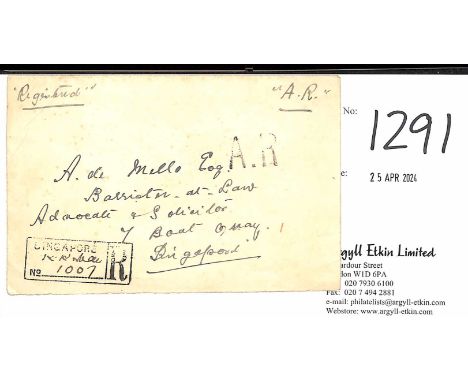 "Registered"
"A.R."
A. de Mello Esq.
A.R
Barrister-at-Law
Advocate & Solicitor
7 Boat Quay.
Singapore
SINGAPORE
R
No 1007
No:
1291
e:
25 APR 2024
rgyll Etkin Limited
ardour Street
don W1D 6PA
020 7930 6100
Fax: 020 7494 2881
e-mail: philatelists@argyll-etkin.com
Webstore: www.argyll-etkin.com